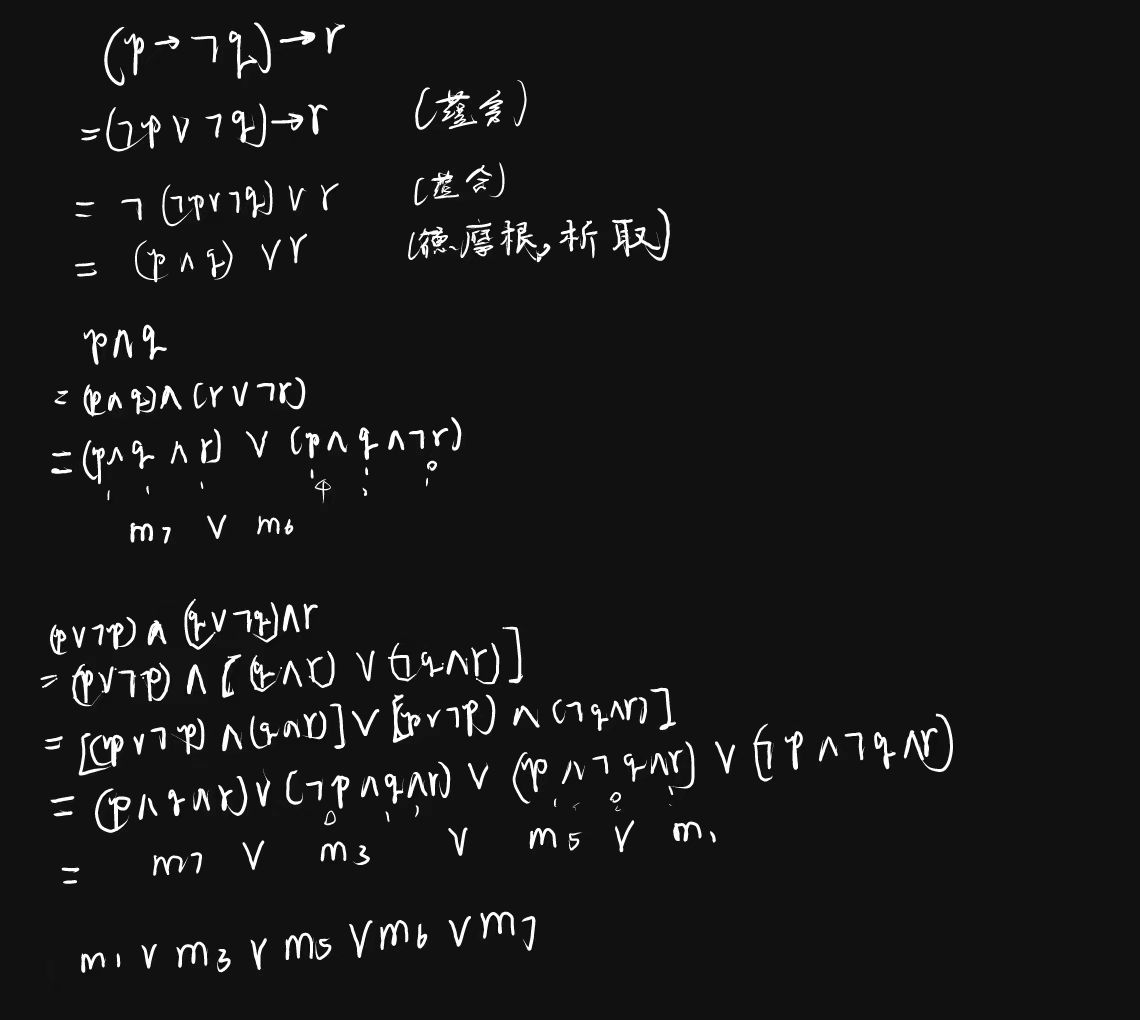 (p→¬q)→r
=(¬p∨¬q)→r (蕴含)
= ¬(¬p∨¬q)∨r (蕴含)
= (p∧q)∨r (德摩根,析取)
p∧q
=(p∧q)∧(r∨¬r)
=(p∧q∧r)∨(p∧q∧¬r)
m7 ∨ m6
(p∨¬p)∧(q∨¬q)∧r
=(p∨¬p)∧[(q∧r)∨(¬q∧r)]
=[(p∨¬p)∧(q∧r)]∨[(p∨¬p)∧(¬q∧r)]
=(p∧q∧r)∨(¬p∧q∧r)∨(p∧¬q∧r)∨(¬p∧¬q∧r)
0 1 1 1 0 1
= m7 ∨ m3 ∨ m5 ∨ m1
m1∨m3∨m5∨m6∨m7